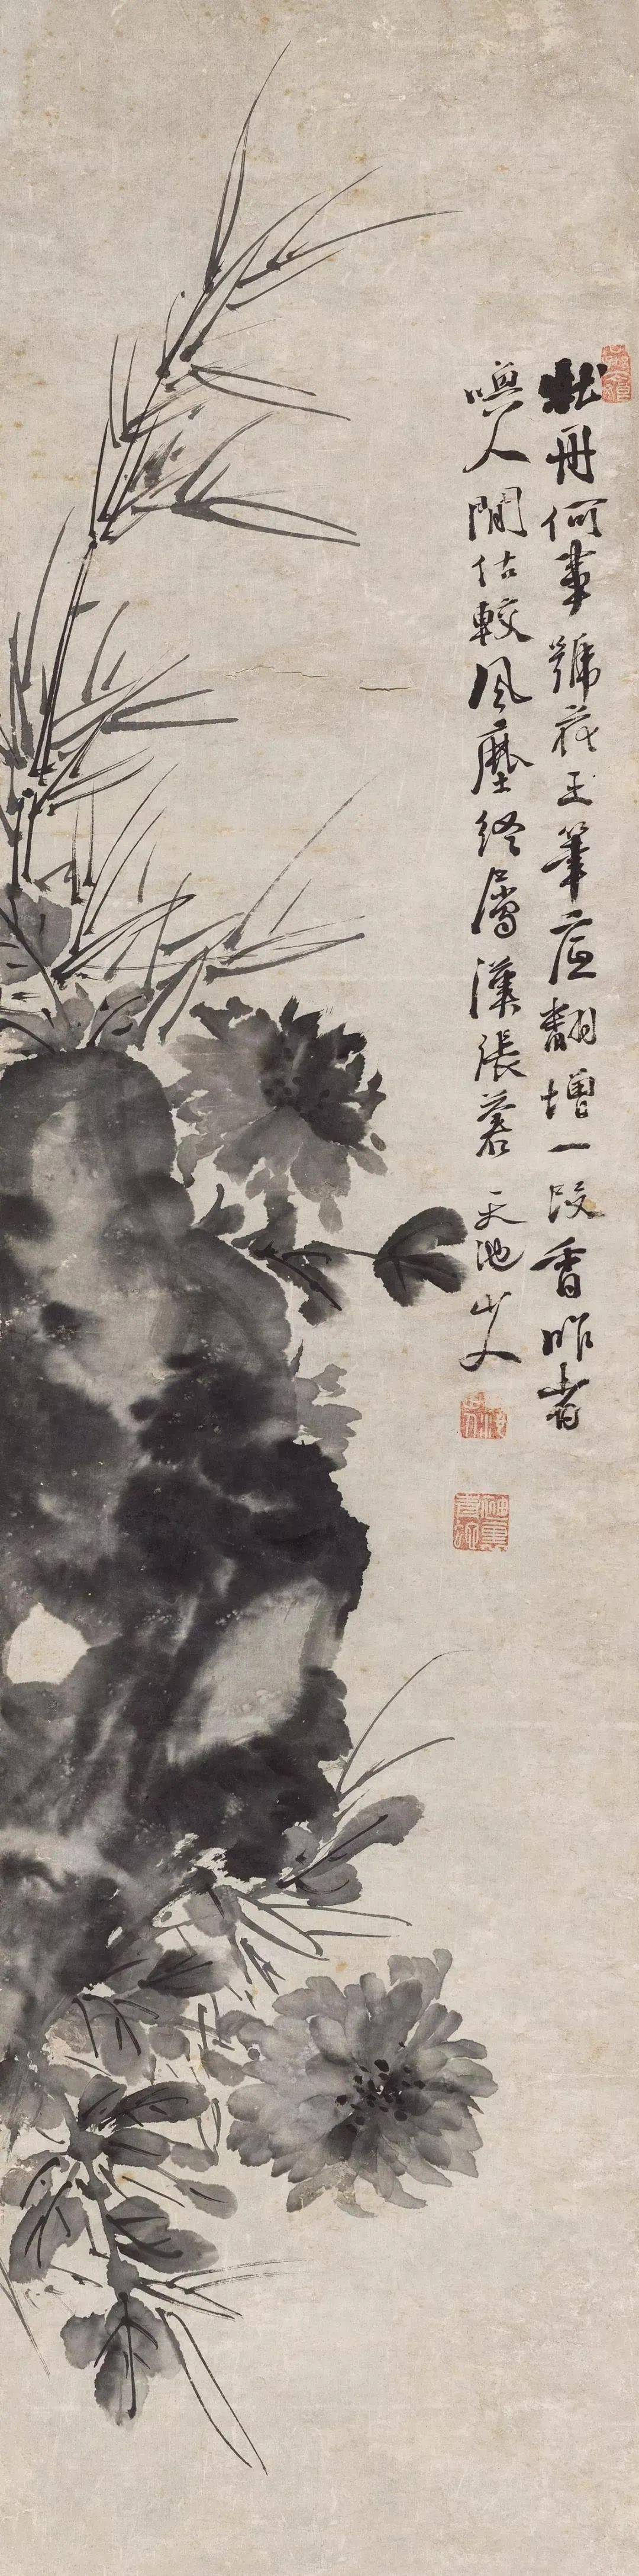 牡丹何事號花王筆底翻增一段香昨者
喚人閒估較風塵終屬漢張蒼 天池山人